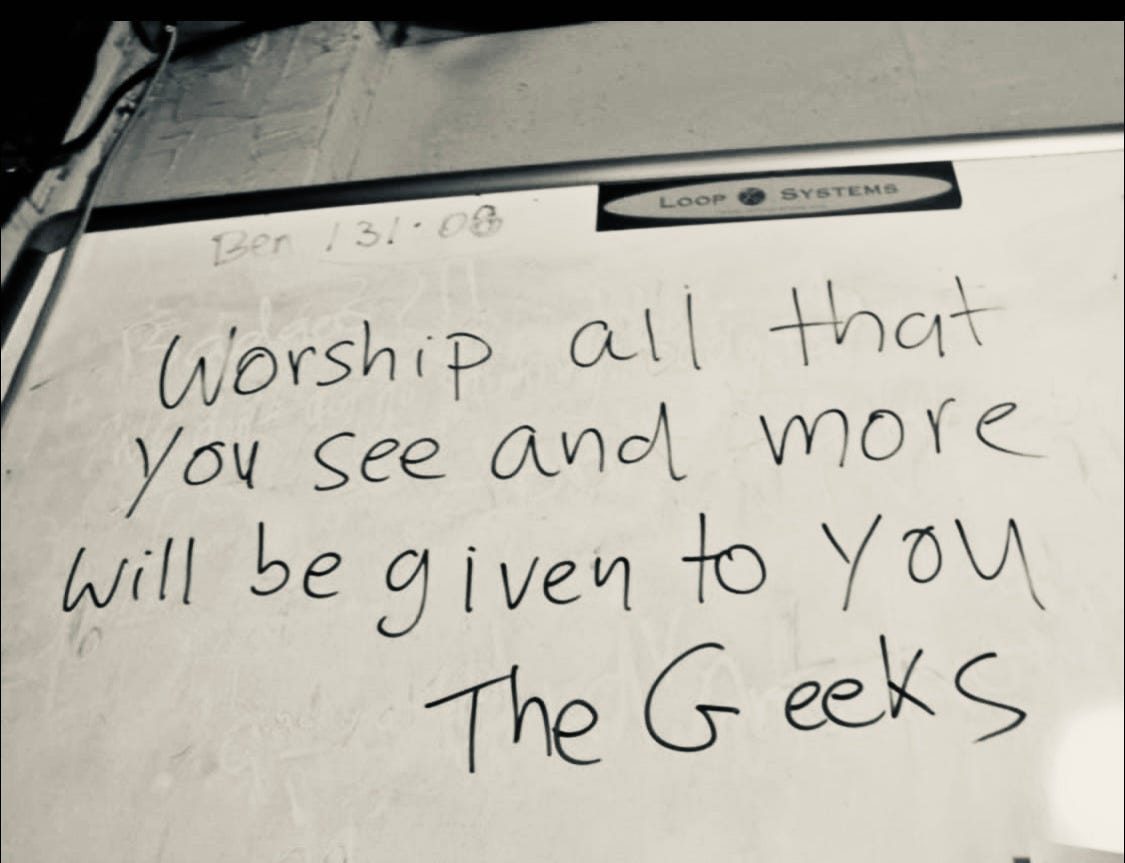 LOOP SYSTEMS
Ben 131.08
Worship all that
you see and more
will be given to you
The Geeks